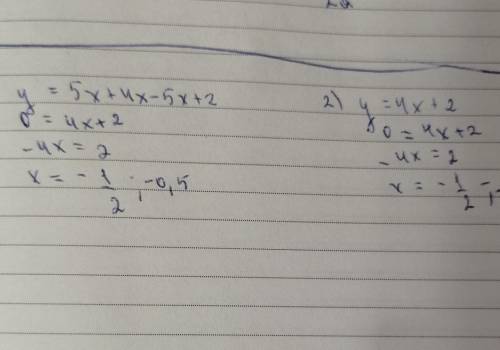 2a
y = 5x+4x-5x+2
0 = 4x+2
-4x = 2
x = - 1/2 ; -0,5
2) y = 4x+2
0 = 4x+2
-4x = 2
x = - 1/2 ; -